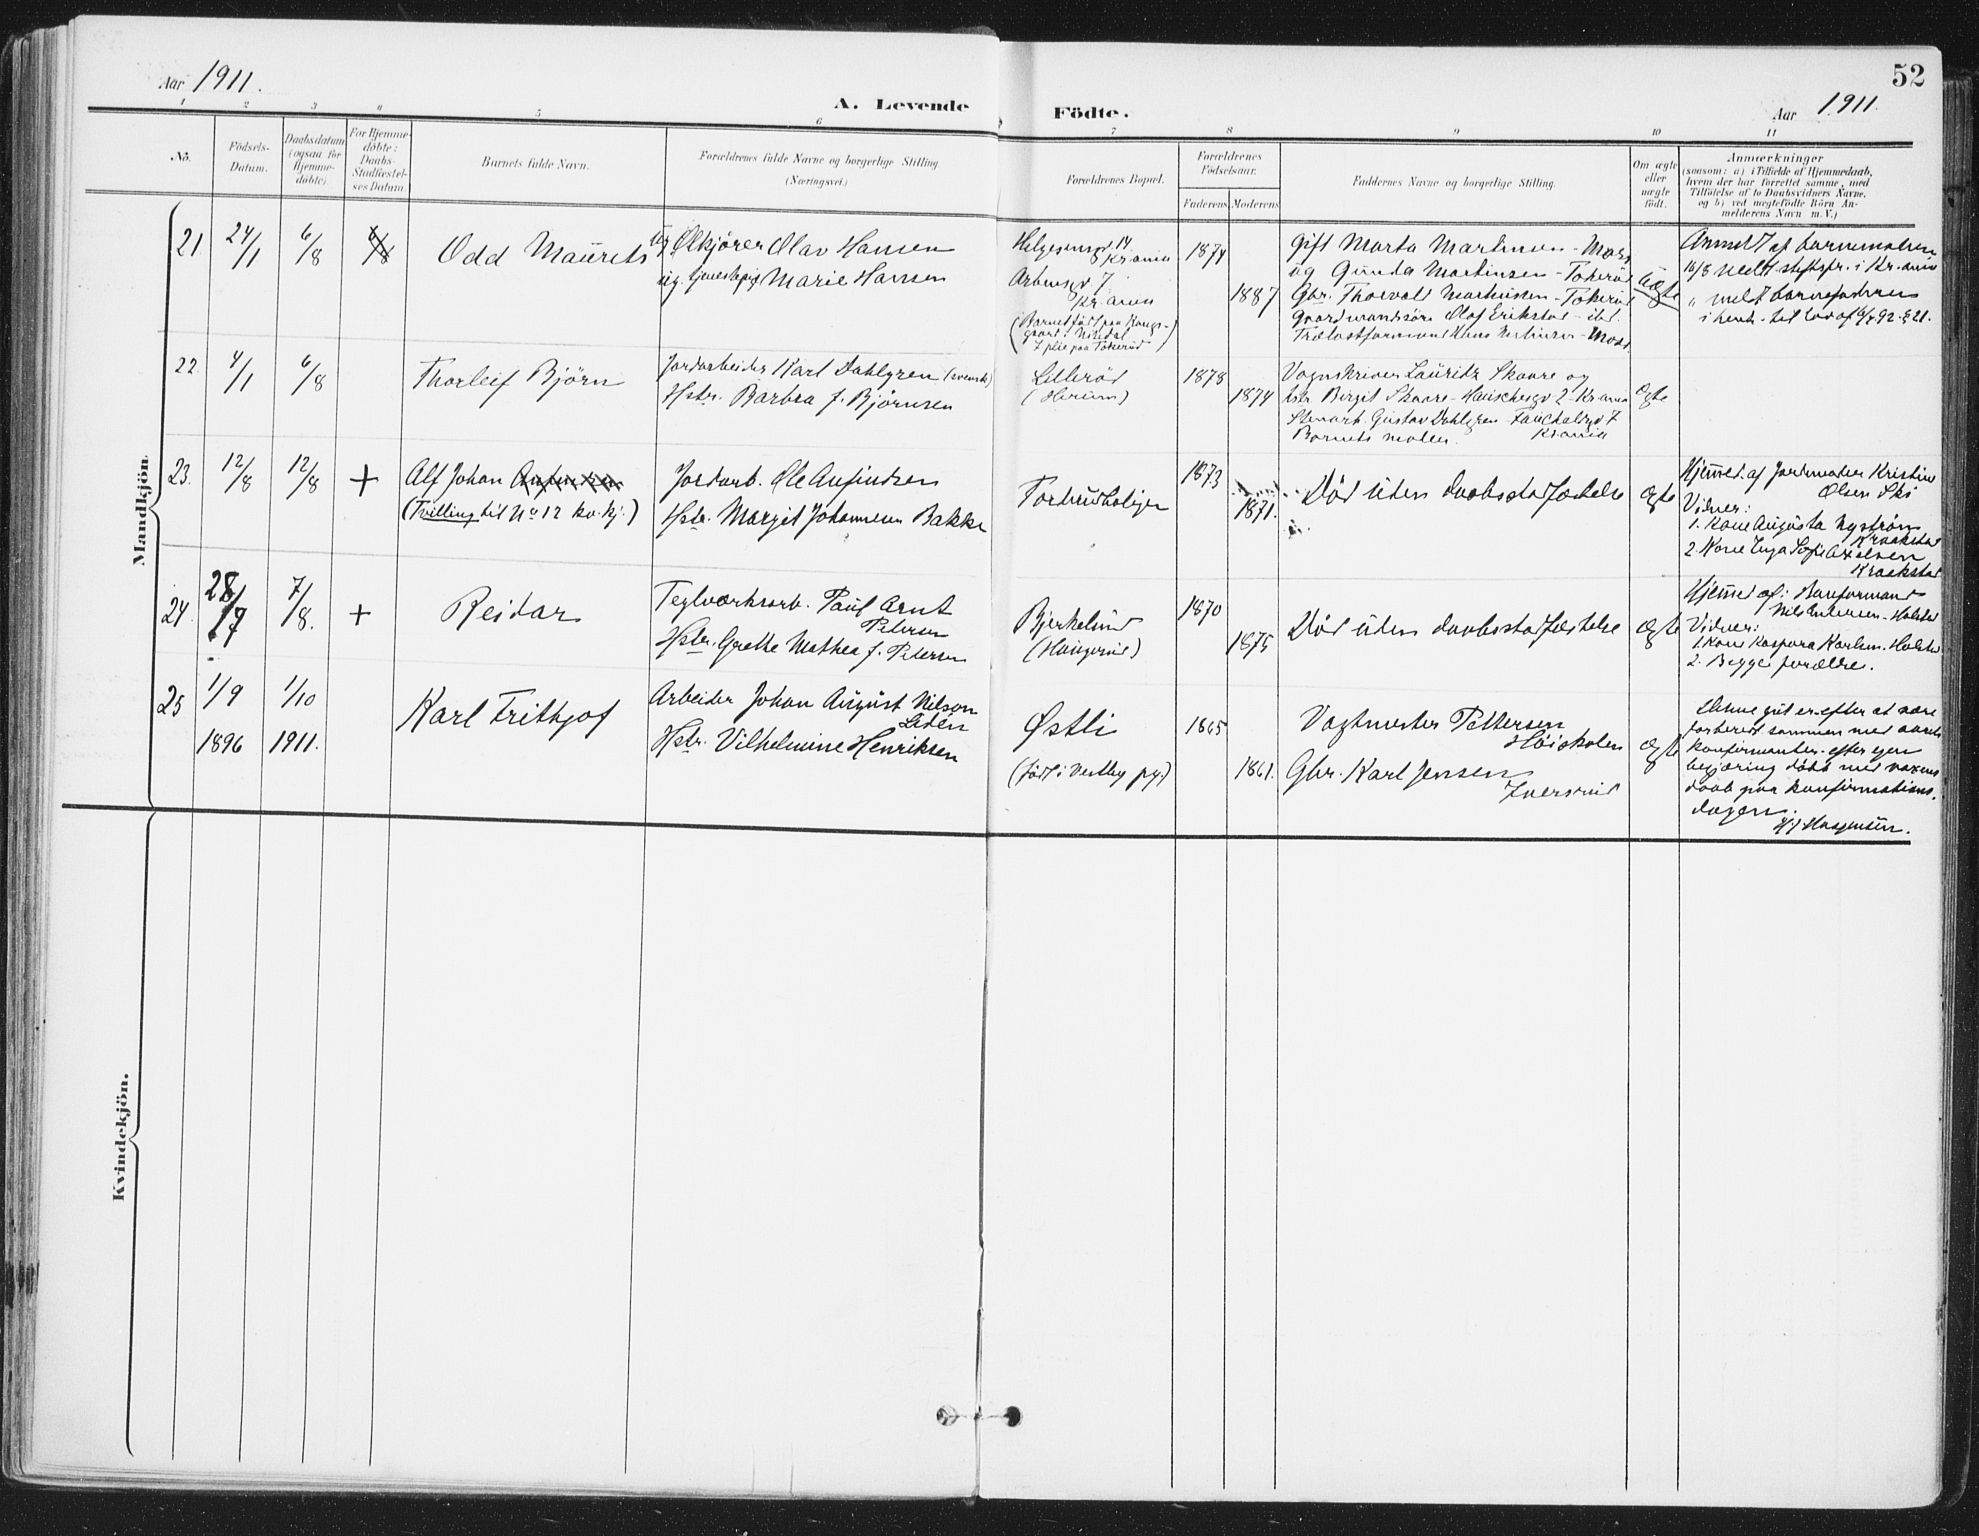 Aar 1911.
A. Levende Födte.
Aar 1911.
52
1 2 3 4 5 6 7 8 9 10 11
No.
Födsels-Datum.
Daabsdatum (ogsaa for Hjemmedöbte).
For Hjemmedöbte: Daabs-Stadfæstelses Datum.
Barnets fulde Navn.
Forældrenes fulde Navne og borgerlige Stilling (Næringsvei.)
Forældrenes Bopæl.
Forældrenes Födselsaar.
Faderens Moderens
Faddernes Navne og borgerlige Stilling.
Om ægte eller uægte födt.
Anmærkninger
(saasom: a) i Tilfælde af Hjemmedaab,
hvem der har forrettet samme, med
Tilföielse af to Daabsvidners Navne.
og b) ved uægtefödte Börn An-
melderens Navn m. V.)
Mandkjön.
21. 24/1 6/8 6/8 Odd Maurits
Ug. Ølkjører Olav Hansen
ug. tjenestepig Marie Hansen
Helgesensgt 14
Kr.ania
7
Kr.ania
(Barnet født paa Kongs-
gaard i Nitedal
I pleie paa Tokerud)
1874
1887
Gift Marta Martinsen - Moss
ug Gunda Martinsen - Tokerud
Gbr. Thorvald Martinsen - Tokerud
Gaardmandssön Olaf Erikstad - ibd.
Trælastformand Hans Martinsen - Moss.
Uægte
Anmeldt af barnemoderen
16/8 meldt stiftspr. i Kr.ania
" meldt barnefaderen
i henh. til lov af 6/7 92 § 21.
22. 4/1 6/8 Thorleif Bjørn
Jordarbeider Karl Dahlgren (svensk)
Hstr. Barbra f. Bjørnsen
Lillerød
1878
1874
Vognskriver Lauritz Skaare og
hstr. Birgit Skaare - Hauschesgt 2 - Kr.ania
Stenarb. Gustav Dahlgren - Fauchaldsgt 7
Kr.ania
Barnets moder.
Ægte
23. 12/8 12/8 + Alf Johan
(Tvilling til No 12 kv. kj.)
Jordarb. Ole Anfindsen
Hstr. Margit Johannesen Bakke
1873
1871.
Død uden daabsstadfæstelse
Ægte
Hjemmed. af Jordmoder Kristine
Olsen Ski
Vidner:
1. Kone Augusta Nystrøm
Kraakstad
2. Kone Inga Sofie Axelsen
Kraakstad
24. 28/7 7/8. + Reidar
Teglværksarb. Paul Arnt
Petersen
Hstr. Grethe Mathea f. Petersen
Bjerkelund
(Haugerud)
1870
1875
Død uden daabsstadfæstelse
Ægte
Hjemmed af: Banformand
Nils Andersen - Holstad
Vidner:
1. Kone Kaspara Karlsen. Holstad
2. Begge forældre.
25 1/9 1/10 Karl Frithjof
1896 1911.
Arbeider Johan August Nilson
Lidén
Hstr. Vilhelmine Henriksen
Østli
(født i Vestby pgj.)
1865
1861.
Vagtmester Pettersen
Høiskolen
Gbr. Karl Jensen
Iversrud
Ægte
Denne gut er efter at være
forberedt sammen med aarets
konfirmanter efter egen
begjæring døbt med voxnes
daab paa konfirmations-
dagen.
Kvindekjön.